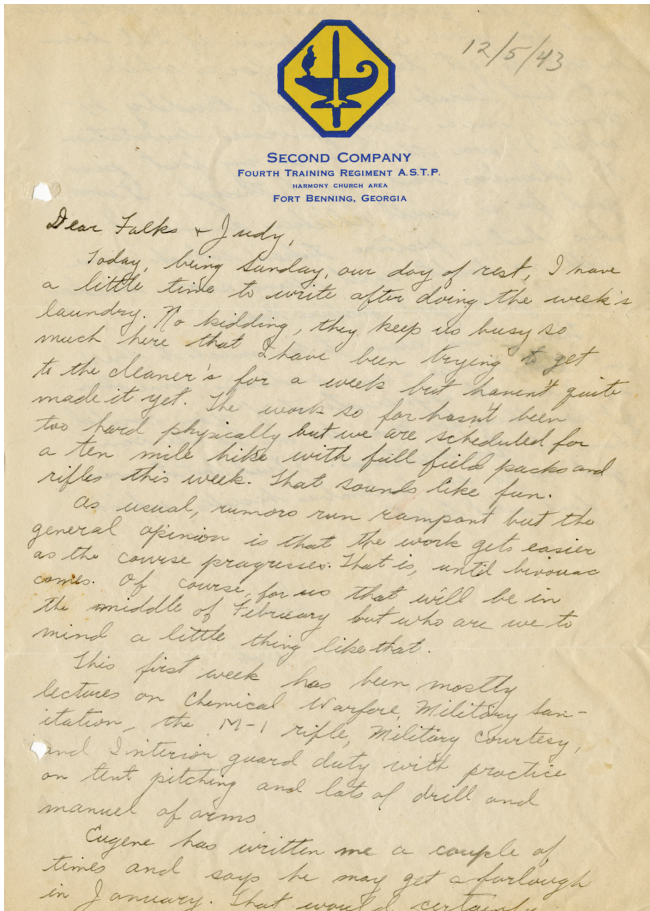 12/5/43
SECOND COMPANY
FOURTH TRAINING REGIMENT A.S.T.P.
HARMONY CHURCH AREA
FORT BENNING, GEORGIA
Dear Folks + Judy,
Today, being Sunday, our day of rest, I have
a little time to write after doing the week's
laundry. No kidding, they keep us busy so
much here that I have been trying to get
to the cleaner's for a week but haven't quite
made it yet. The work so far hasn't been
too hard physically but we are scheduled for
a ten mile hike with full field packs and
rifles this week. That sounds like fun.
As usual, rumors run rampant but the
general opinion is that the work gets easier
as the course progresses. That is, until bivouac
comes. Of course, for us that will be in
the middle of February but who are we to
mind a little thing like that.
This first week has been mostly
lectures on Chemical Warfare, Military San-
itation, the M-1 rifle, Military Courtesy,
and Interior guard duty with practice
on tent pitching and lots of drill and
manuel of arms
Eugene has written me a couple of
times and says he may get a furlough
in January. That would certainly